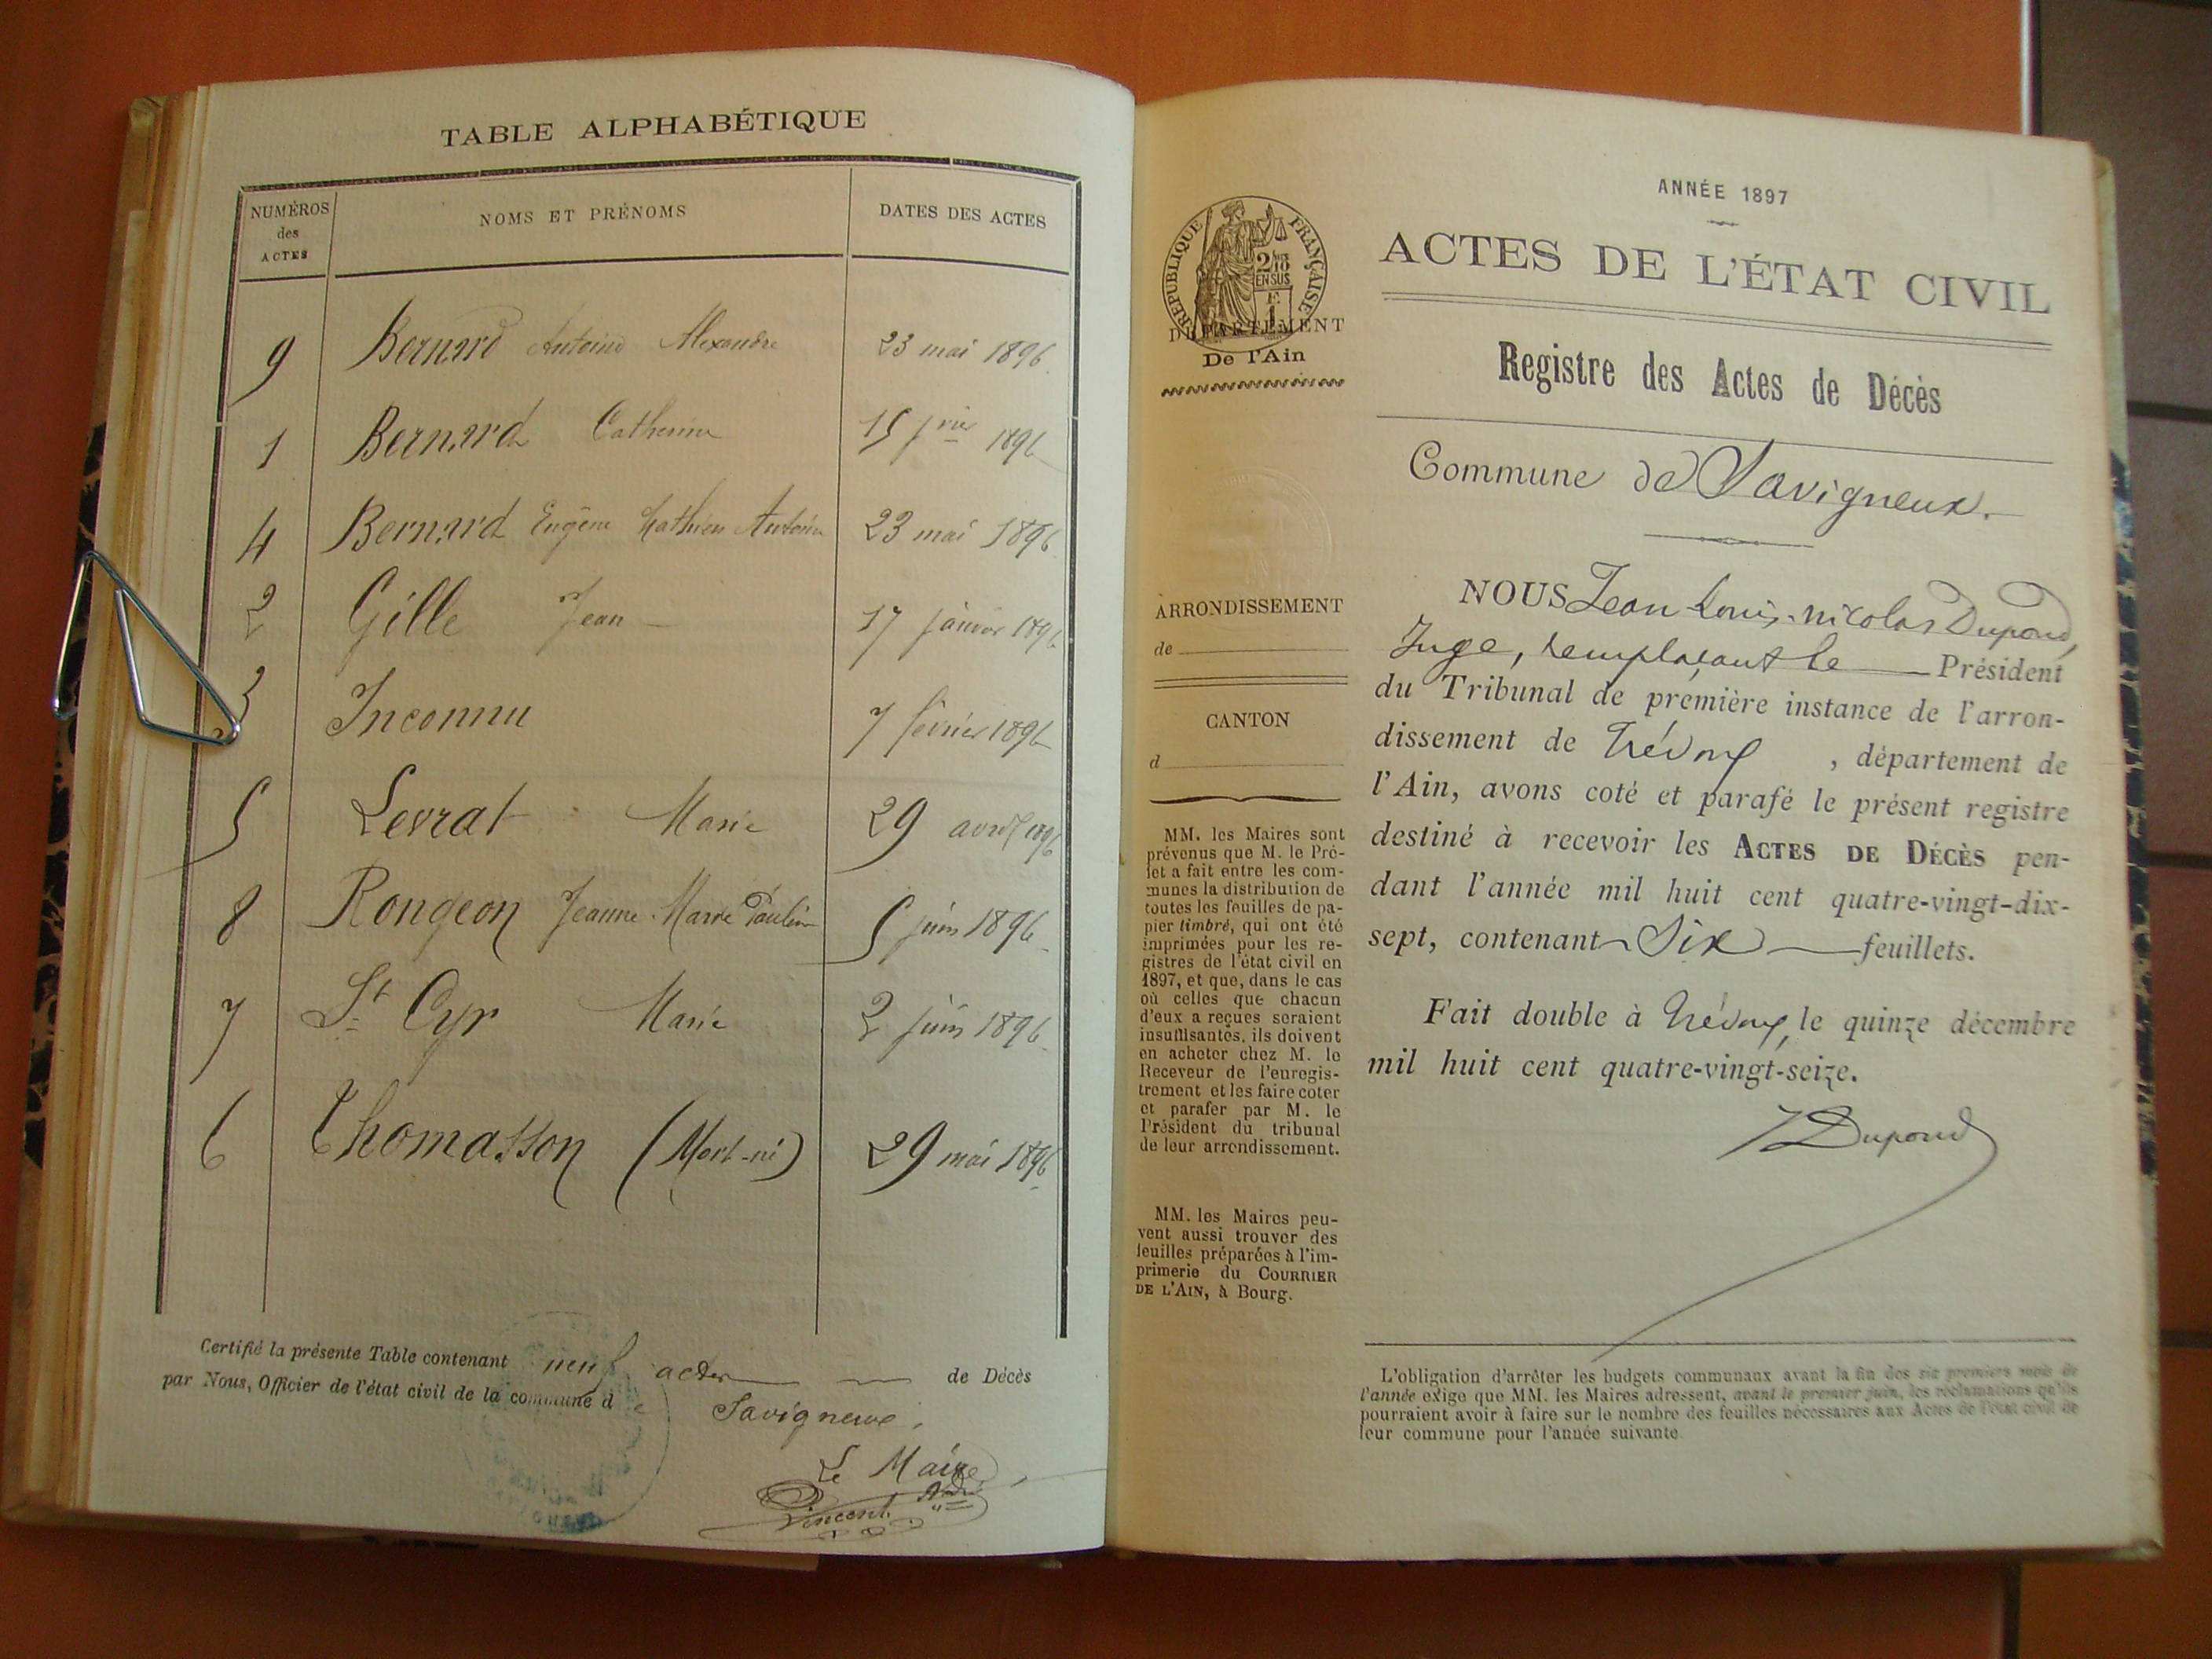 TABLE ALPHABÉTIQUE
NUMÉROS des ACTES NOMS ET PRÉNOMS DATES DES ACTES
9 Bernard Antoine Alexandre 23 mai 1896
1 Bernard Catherine 15 jvier 1896
4 Bernard Eugène Mathieu Antoine 23 mai 1896
2 Gille Jean 17 janvier 1896
3 Inconnu 7 février 1896
5 Levrat Marie 29 avril 1896
8 Rongeon Jeanne-Marie Pauline 5 juin 1896
7 St Cyr Marie 2 juin 1896
6 Thomasson (Mort-né) 29 mai 1896
Certifié la présente Table contenant neuf actes de Décès
par Nous, Officier de l'état civil de la commune de Savigneux,
Le Maire
Vincent
ANNÉE 1897
RÉPUBLIQUE FRANÇAISE
2/10 EN SUS
DÉPARTEMENT
De l'Ain
ACTES DE L'ÉTAT CIVIL
Registre des Actes de Décès
Commune de Savigneux.
ARRONDISSEMENT
de
CANTON
d
MM. les Maires sont
prévenus que M. le Pré-
fet a fait entre les com-
munes la distribution de
toutes les feuilles de pa-
pier timbré, qui ont été
imprimées pour les re-
gistres de l'état civil en
1897, et que, dans le cas
où celles que chacun
d'eux a reçues seraient
insuffisantes, ils doivent
en acheter chez M. le
Receveur de l'enregis-
trement et les faire coter
et parafer par M. le
Président du tribunal
de leur arrondissement.
MM. les Maires peu-
vent aussi trouver des
feuilles préparées à l'im-
primerie du COURRIER
DE L'AIN, à Bourg.
NOUS Jean Louis-nicolas Dupond,
Juge, remplaçant le Président
du Tribunal de première instance de l'arron-
dissement de Trévoux, département de
l'Ain, avons coté et parafé le présent registre
destiné à recevoir les ACTES DE DÉCÈS pen-
dant l'année mil huit cent quatre-vingt-dix-
sept, contenant Six feuillets.
Fait double à Trévoux, le quinze décembre
mil huit cent quatre-vingt-seize.
Dupond
L'obligation d'arrêter les budgets communaux avant la fin des six premiers mois de
l'année exige que MM. les Maires adressent, avant le premier juin, les réclamations qu'ils
pourraient avoir à faire sur le nombre des feuilles nécessaires aux Actes de l'état civil de
leur commune pour l'année suivante.